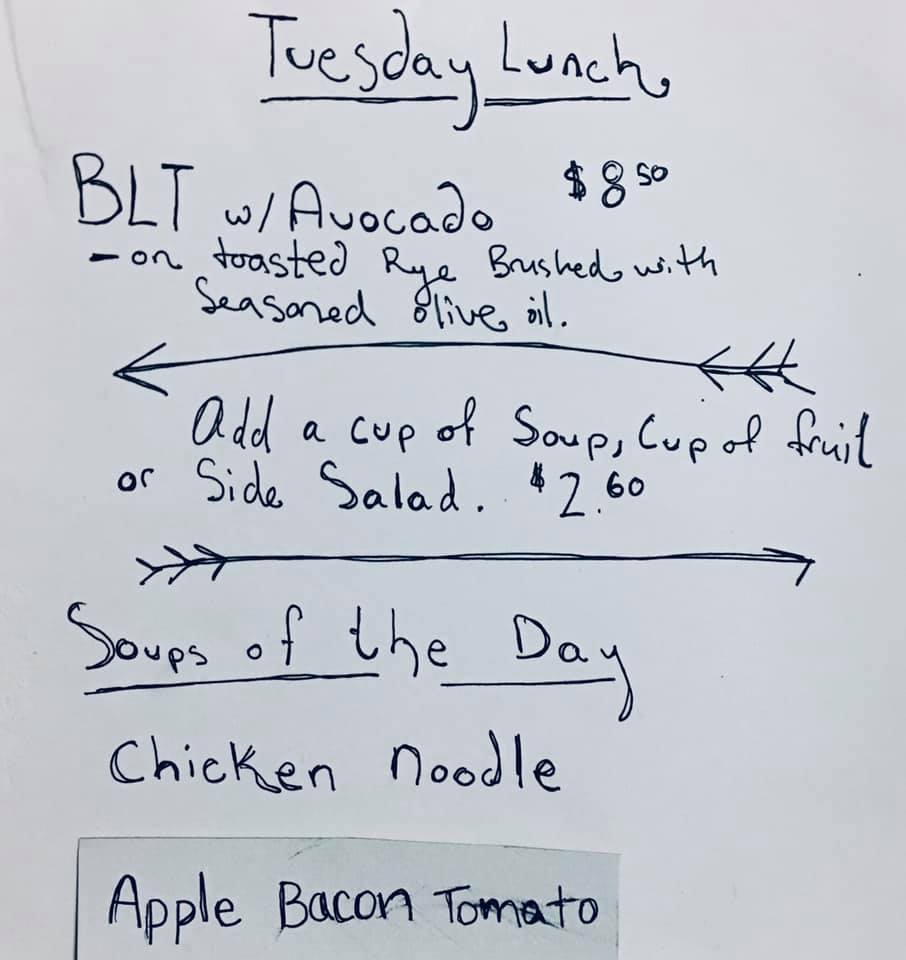 Tuesday Lunch
BLT w/ Avocado $8 50
- on toasted Rye Brushed with
Seasoned olive oil.
Add a cup of Soup, Cup of fruit
or Side Salad. $2.60
Soups of the Day
Chicken Noodle
Apple Bacon Tomato